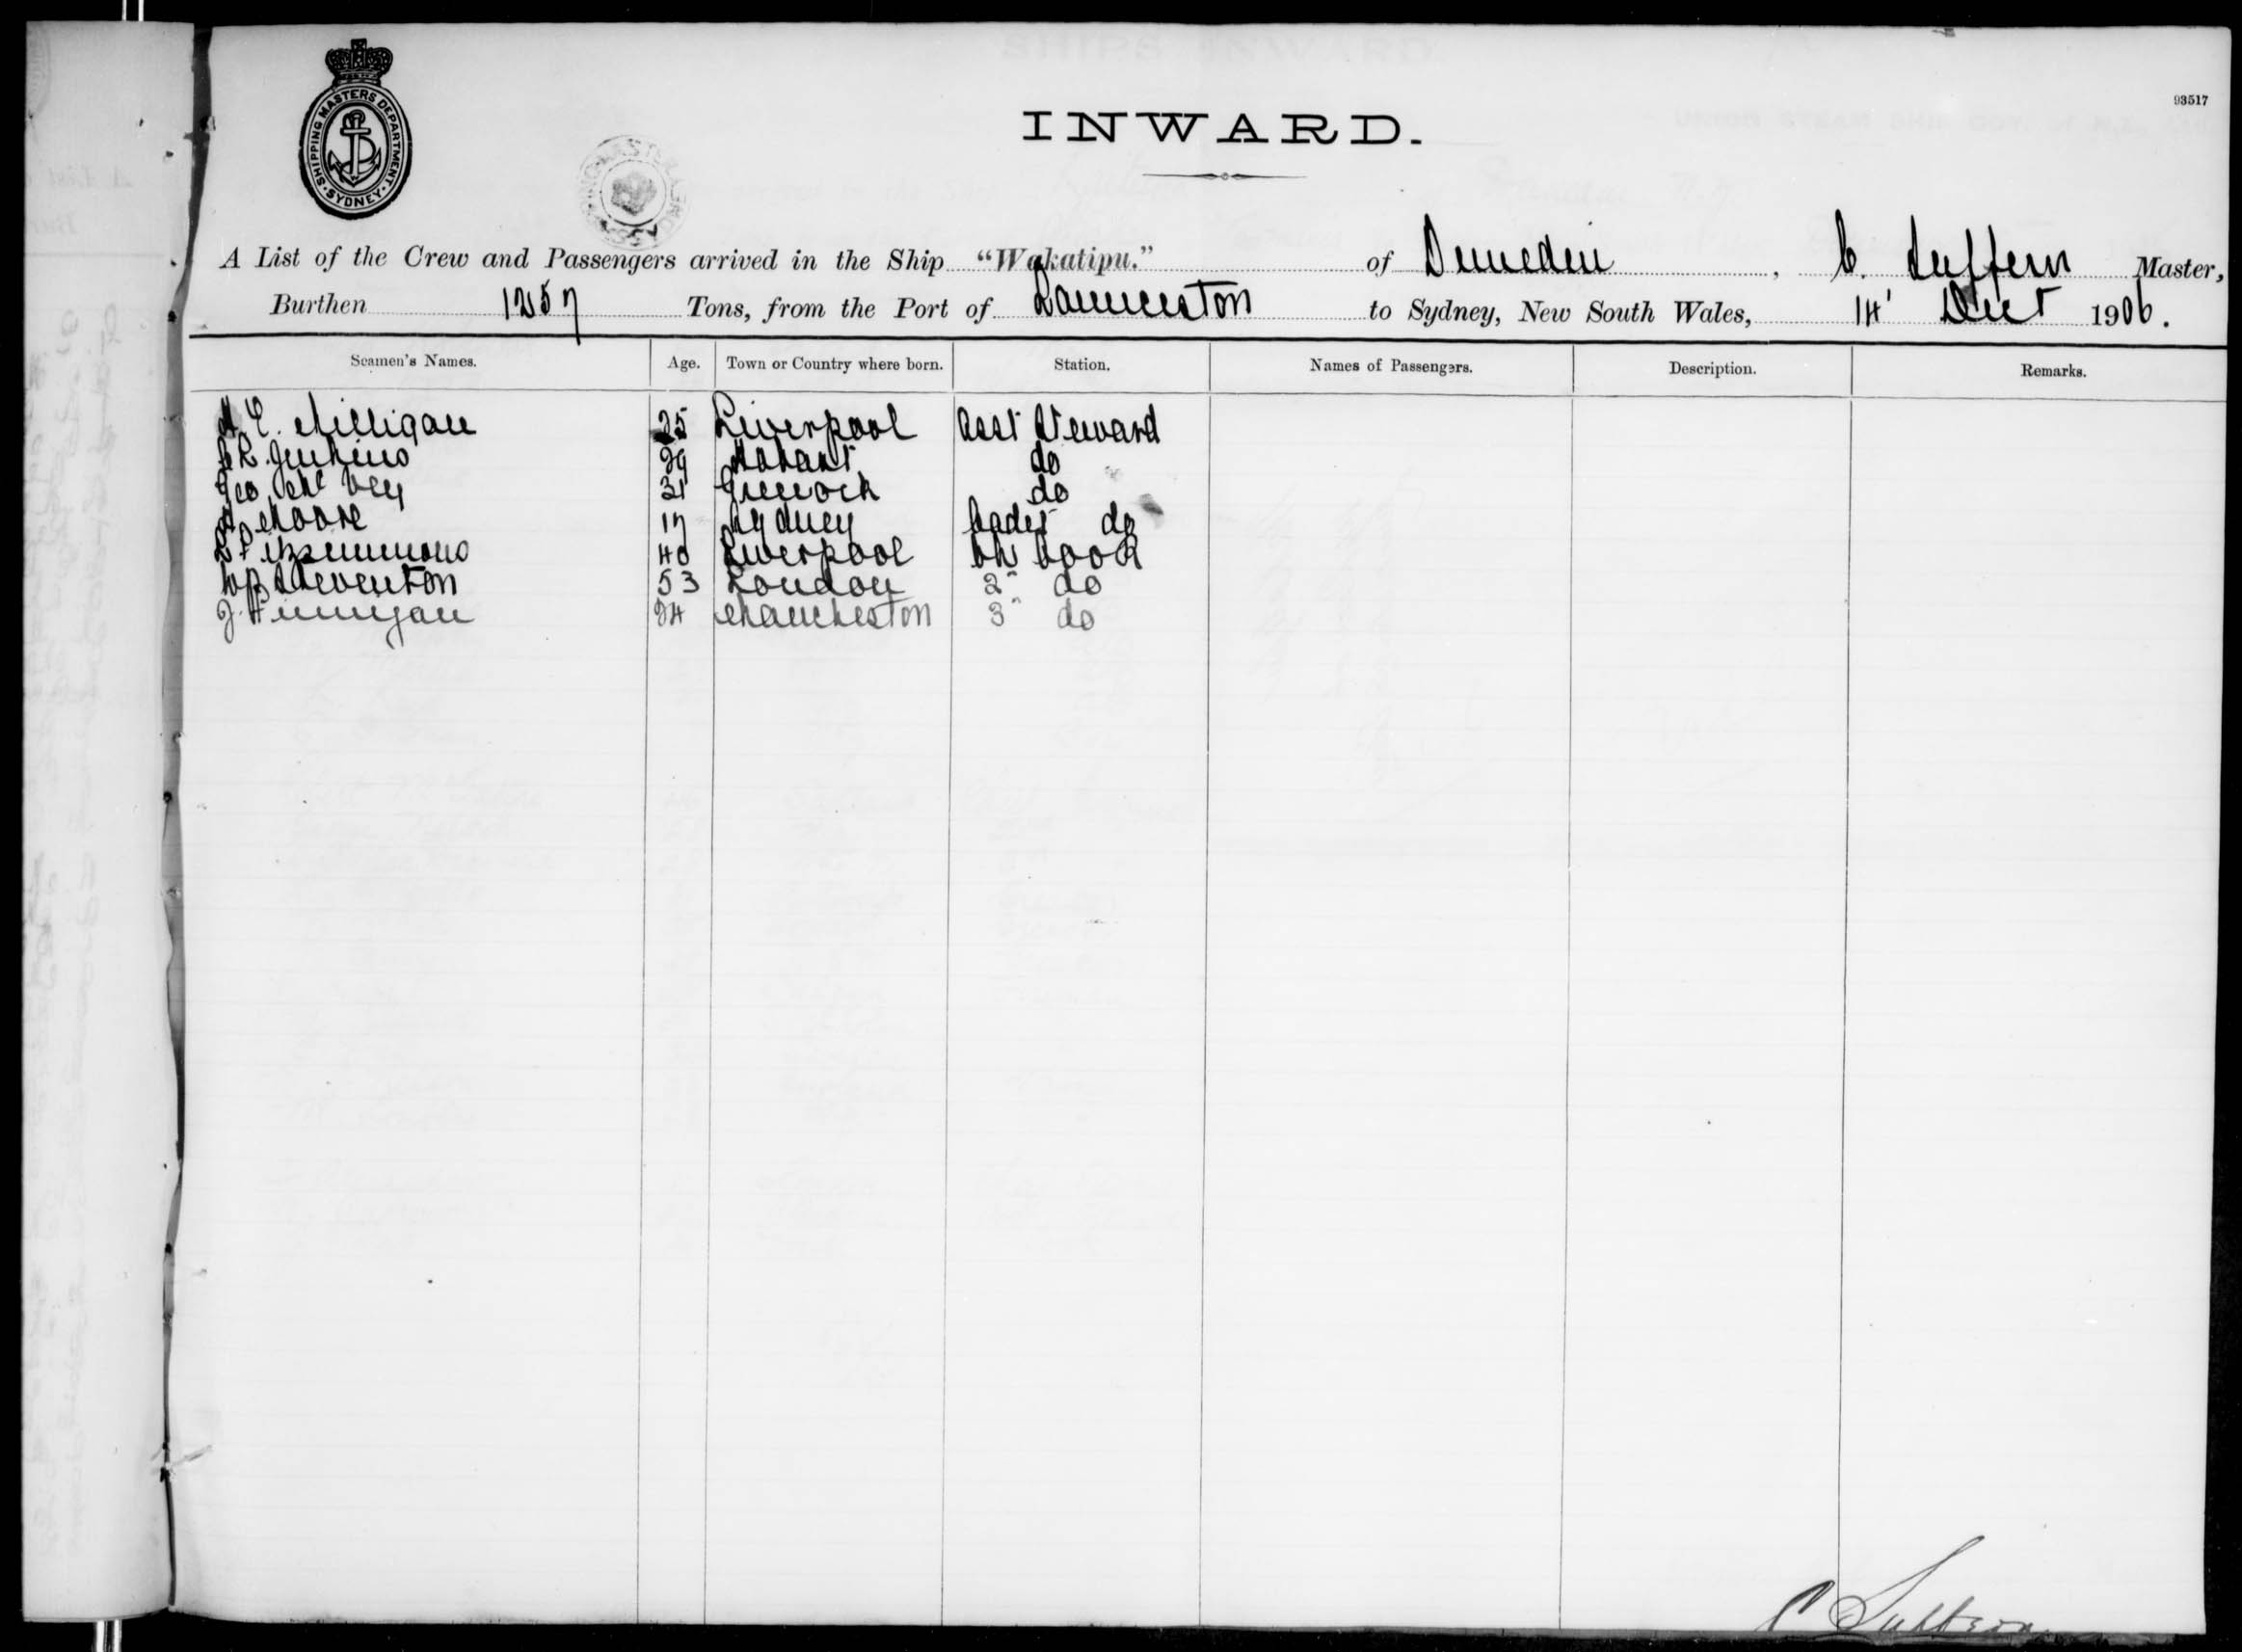 93517
SHIPPING MASTERS DEPARTMENT. SYDNEY.
INWARD.
A List of the Crew and Passengers arrived in the Ship "Wakatipu." of Dunedin, C. Suffern Master,
Burthen 1257 Tons, from the Port of Launceston to Sydney, New South Wales, 14' Dec 1906.
Seamen's Names. Age. Town or Country where born. Station. Names of Passengers. Description. Remarks.
H. E. Milligan 25 Liverpool Asst Steward
R. Jenkins 29 Hobart do
Geo Mc Vey 31 Greenock do
Moore 17 Sydney Cadet do
Fitzsimmons 40 Liverpool Ch Cook
Steventon 53 London 2" do
J. Finnigan 24 Manchester 3" do
C Suffern